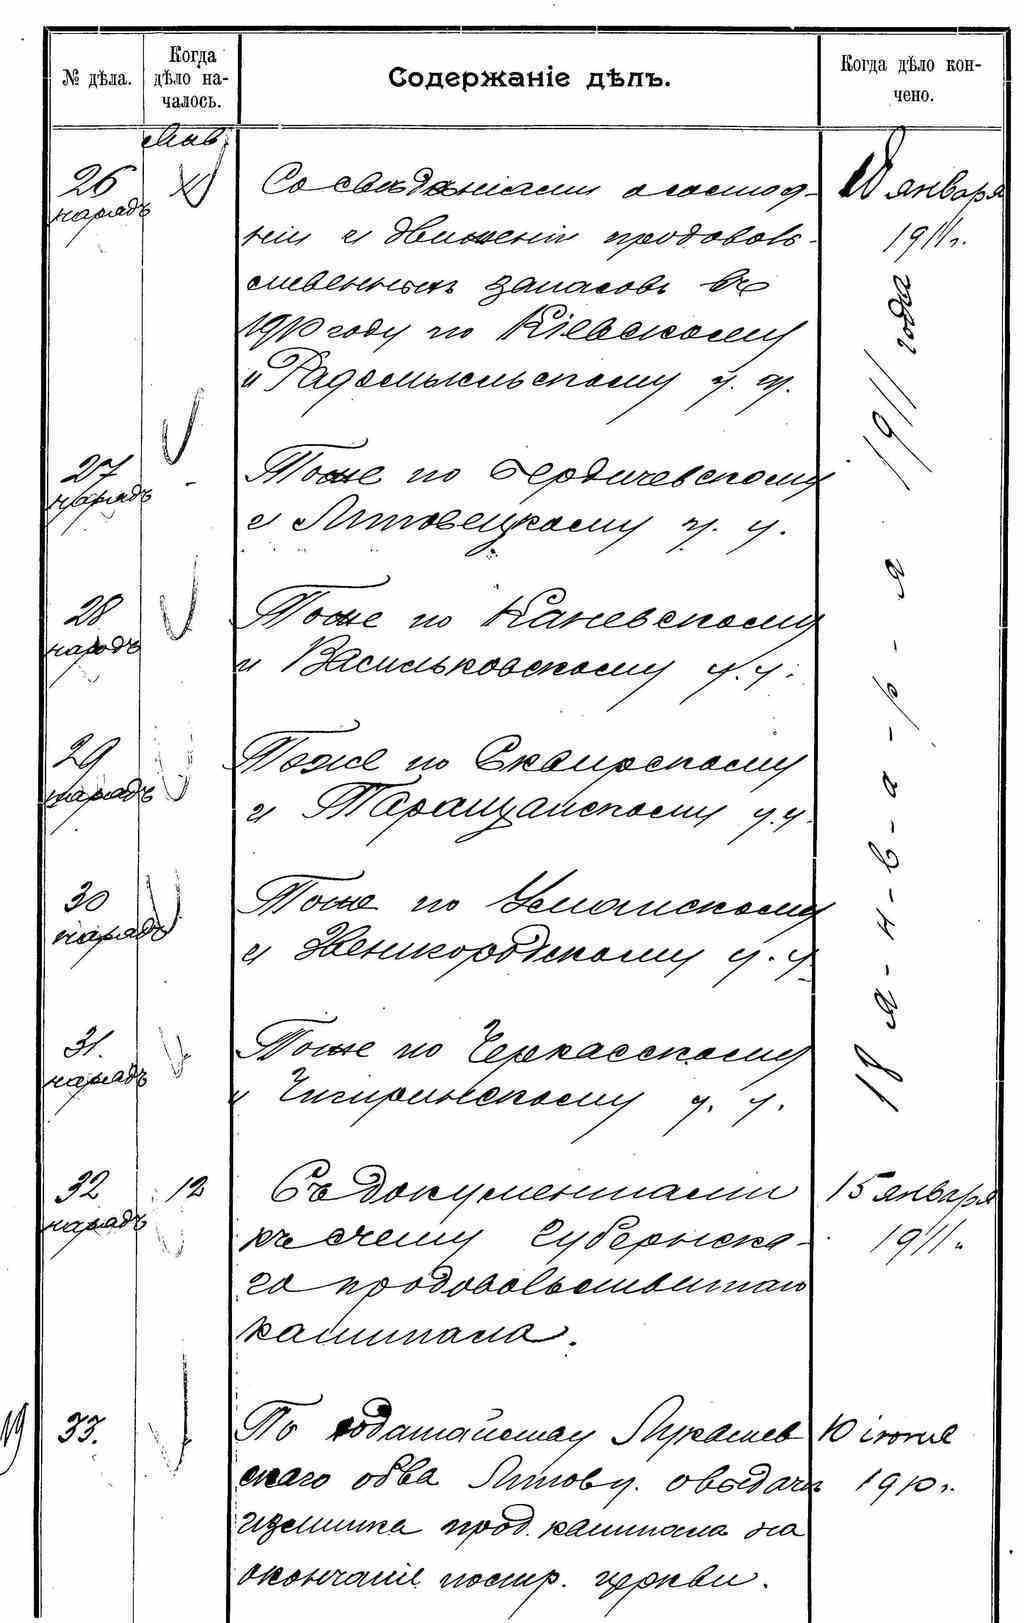 № дѣла.
Когда
дѣло на-
чалось.
Содержаніе дѣлъ.
Когда дѣло кон-
чено.
Янв.
26
нарядъ
Со свѣдѣніями о состоя-
ніи и движеніи продоволь-
ственныхъ запасовъ въ
1910 году по Кіевскому
и Радомысльскому у. у.
18 января
1911 г.
27
нарядъ
Тоже по Бердичевскому
и Липовецкому у. у.
28
нарядъ
Тоже по Каневскому
и Васильковскому у. у.
29
нарядъ
Тоже по Сквирскому
и Таращанскому у. у.
30
нарядъ
Тоже по Уманскому
и Звенигородскому у. у.
31.
нарядъ
Тоже по Черкасскому
и Чигиринскому у. у.
18 я-н-в-а-р-я 1911 года
32
нарядъ
12
Съ документами
къ счету Губернска-
го продовольственнаго
капитала.
15 января
1911 г.
19
33.
По ходатайству Лукашев
скаго об-ва Липов. у. о выдачѣ
излишка прод. капитала на
окончаніе постр. церкви.
10 іюня
1910 г.